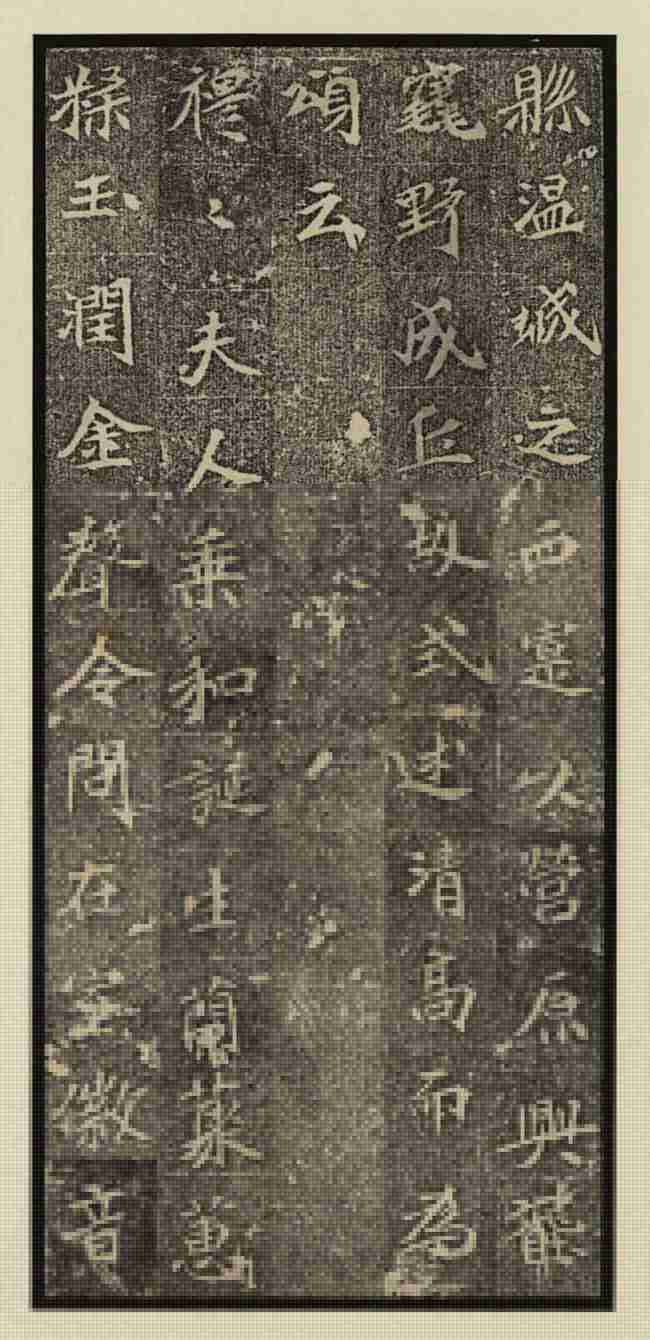 縣温城之西以營原興
野成丘故式述清高而為
頌云
禮〻夫人乘和誕生蘭蕙
糅玉潤金聲令問在室徽音